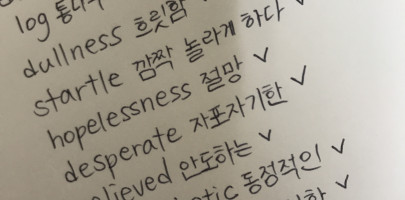 log 통나무
dullness 흐릿함
startle 깜짝 놀라게 하다 ✓
hopelessness 절망 ✓
desperate 자포자기한 ✓
안도하는 ✓
동정적인 ✓